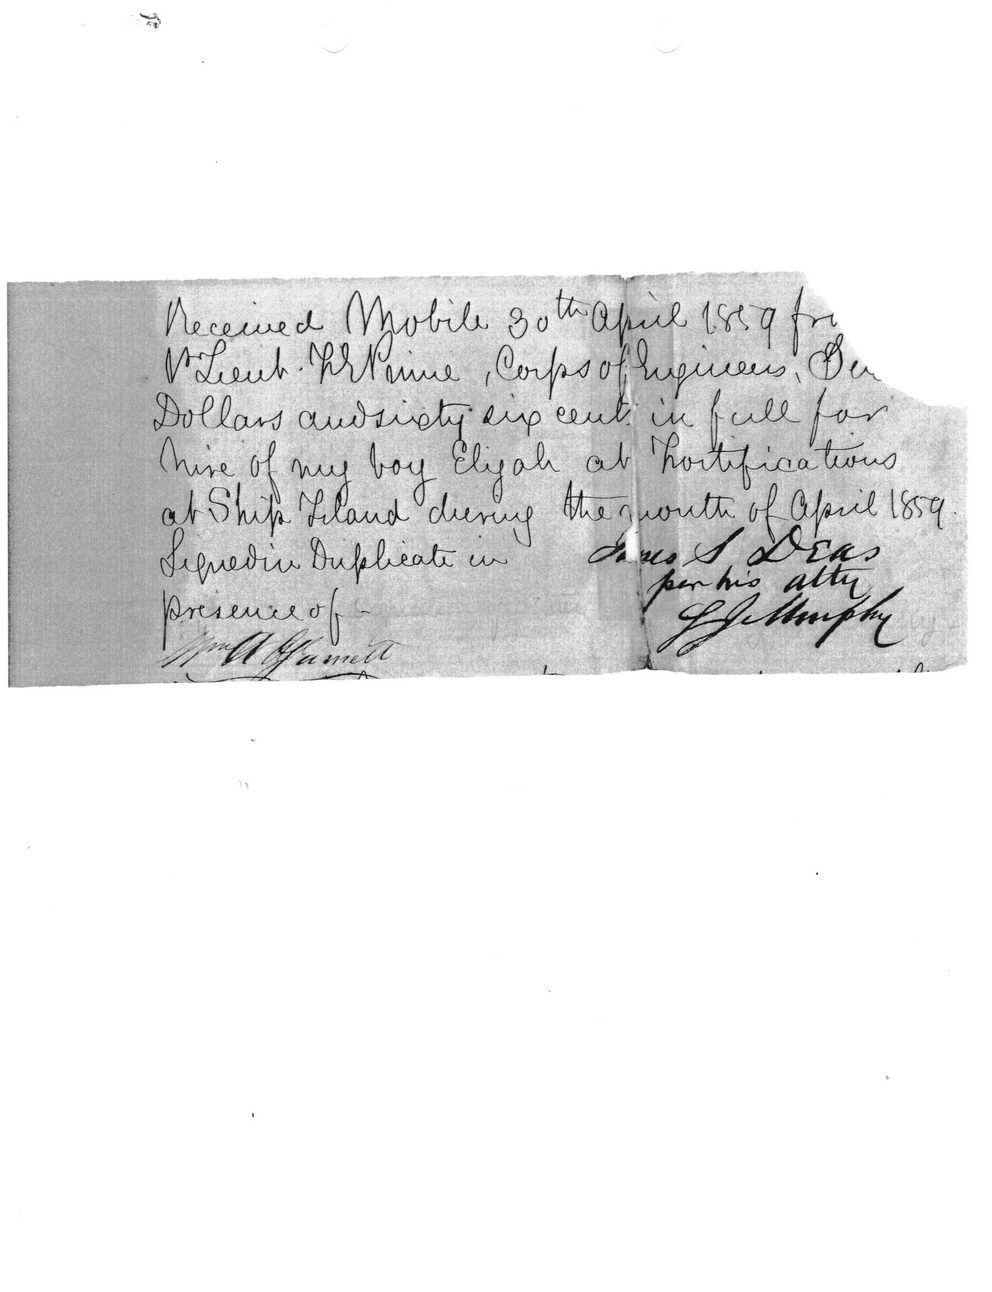 Received Mobile 30th April 1859
1st Lieut. F E Prime, Corps of Engineers,
Dollars and sixty six cent in full for
hire of my boy Elijah at Fortifications
at Ship Island during the month of April 1859.
Signed in Duplicate in
presence of -
James S Deas
per his atty
Murphy
Wm A